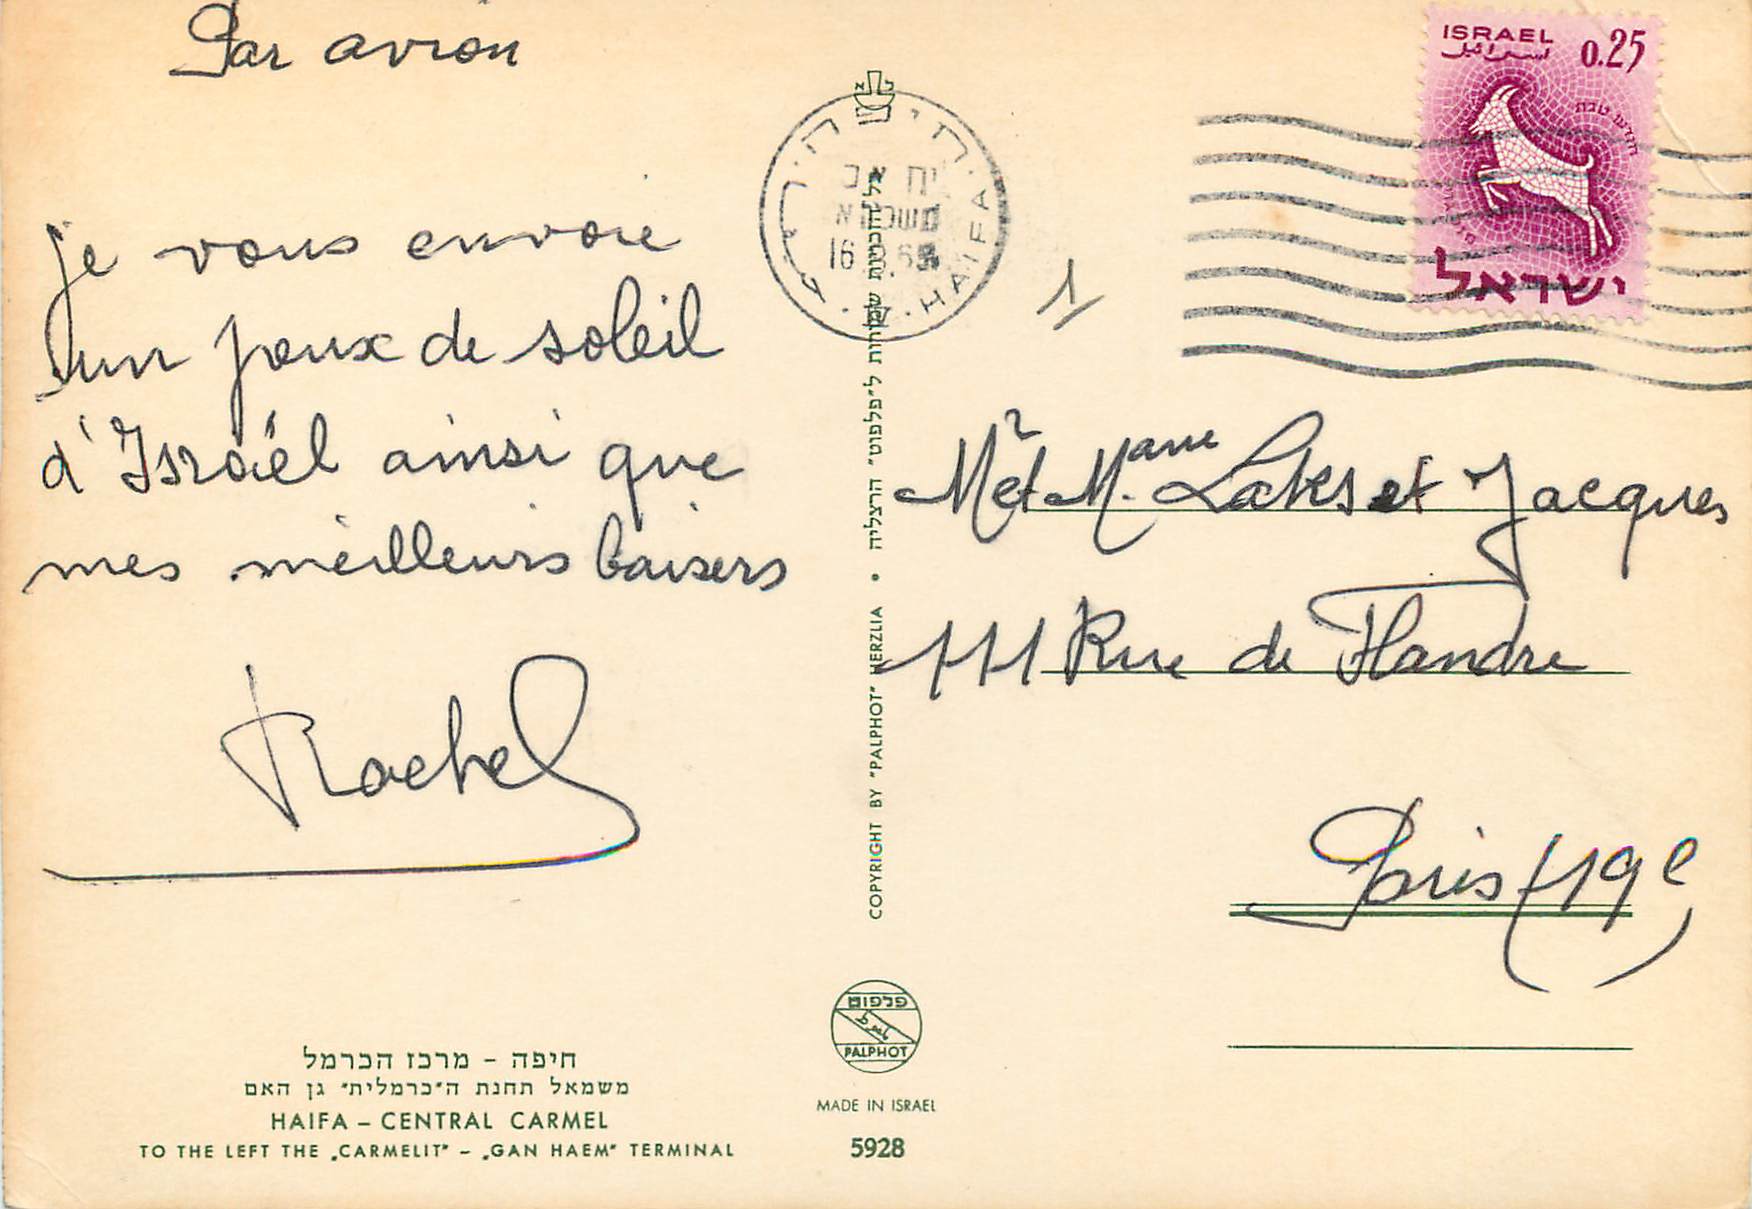 Par avion
je vous envoie
un peux de soleil
d'Israël ainsi que
mes meilleurs baisers
Rachel
חיפה - מרכז הכרמל
משמאל תחנת ה"כרמלית" גן האם
HAIFA – CENTRAL CARMEL
TO THE LEFT THE „CARMELIT" – „GAN HAEM" TERMINAL
כל הזכויות שמורות ל"פלפוט" הרצליה • COPYRIGHT BY "PALPHOT" HERZLIA
פלפוט
PALPHOT
MADE IN ISRAEL
5928
HAIFA
חיפה
יח אב
1
ISRAEL 0.25
اسرائيل
חודש טבת
ישראל
Mr et Mame Laks et Jacques
111 Rue de Flandre
Paris (19e)